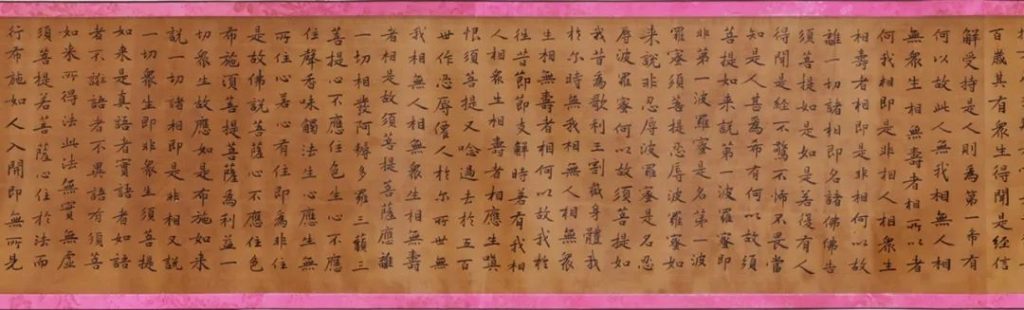 百歲其有眾生得聞是經信
解受持是人則為第一希有
何以故此人無我相無人相
無眾生相無壽者相所以者
何我相即是非相人相眾生
相壽者相即是非相何以故
離一切諸相即名諸佛佛告
須菩提如是如是若復有人
得聞是經不驚不怖不畏當
知是人甚為希有何以故須
菩提如来說第一波羅蜜即
非第一波羅蜜是名第一波
羅蜜須菩提忍辱波羅蜜如
来說非忍辱波羅蜜是名忍
辱波羅蜜何以故須菩提如
我昔為歌利王割截身體我
於爾時無我相無人相無眾
生相無壽者相何以故我於
往昔節節支解時若有我相
人相眾生相壽者相應生嗔
恨須菩提又念過去於五百
世作忍辱僊人於爾所世無
我相無人相無眾生相無壽
者相是故須菩提菩薩應離
一切相發阿耨多羅三藐三
菩提心不應住色生心不應
住聲香味觸法生心應生無
所住心若心有住即為非住
是故佛說菩薩心不應住色
布施須菩提菩薩為利益一
切眾生故應如是布施如来
說一切諸相即是非相又說
一切眾生即非眾生須菩提
如来是真語者實語者如語
者不誑語者不異語者須菩
如来所得法此法無實無虛
須菩提若菩薩心住於法而
行布施如人入闇即無所見